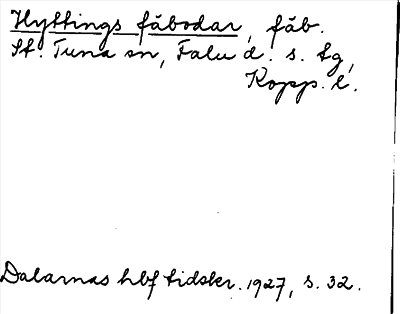 Hyttings fäbodar, fäb.
St. Tuna sn, Falu d. s. tg,
Kopp. l.
Dalarnas hbf tidskr. 1927, s. 32.